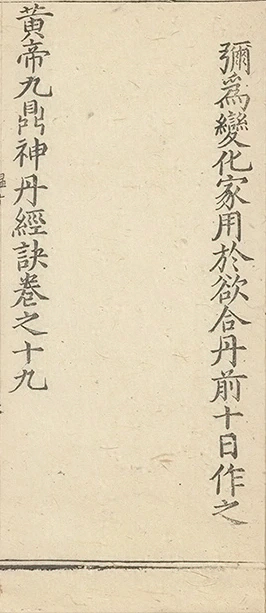 彌為變化家用於欲合丹前十日作之
黃帝九鼎神丹經訣卷之十九